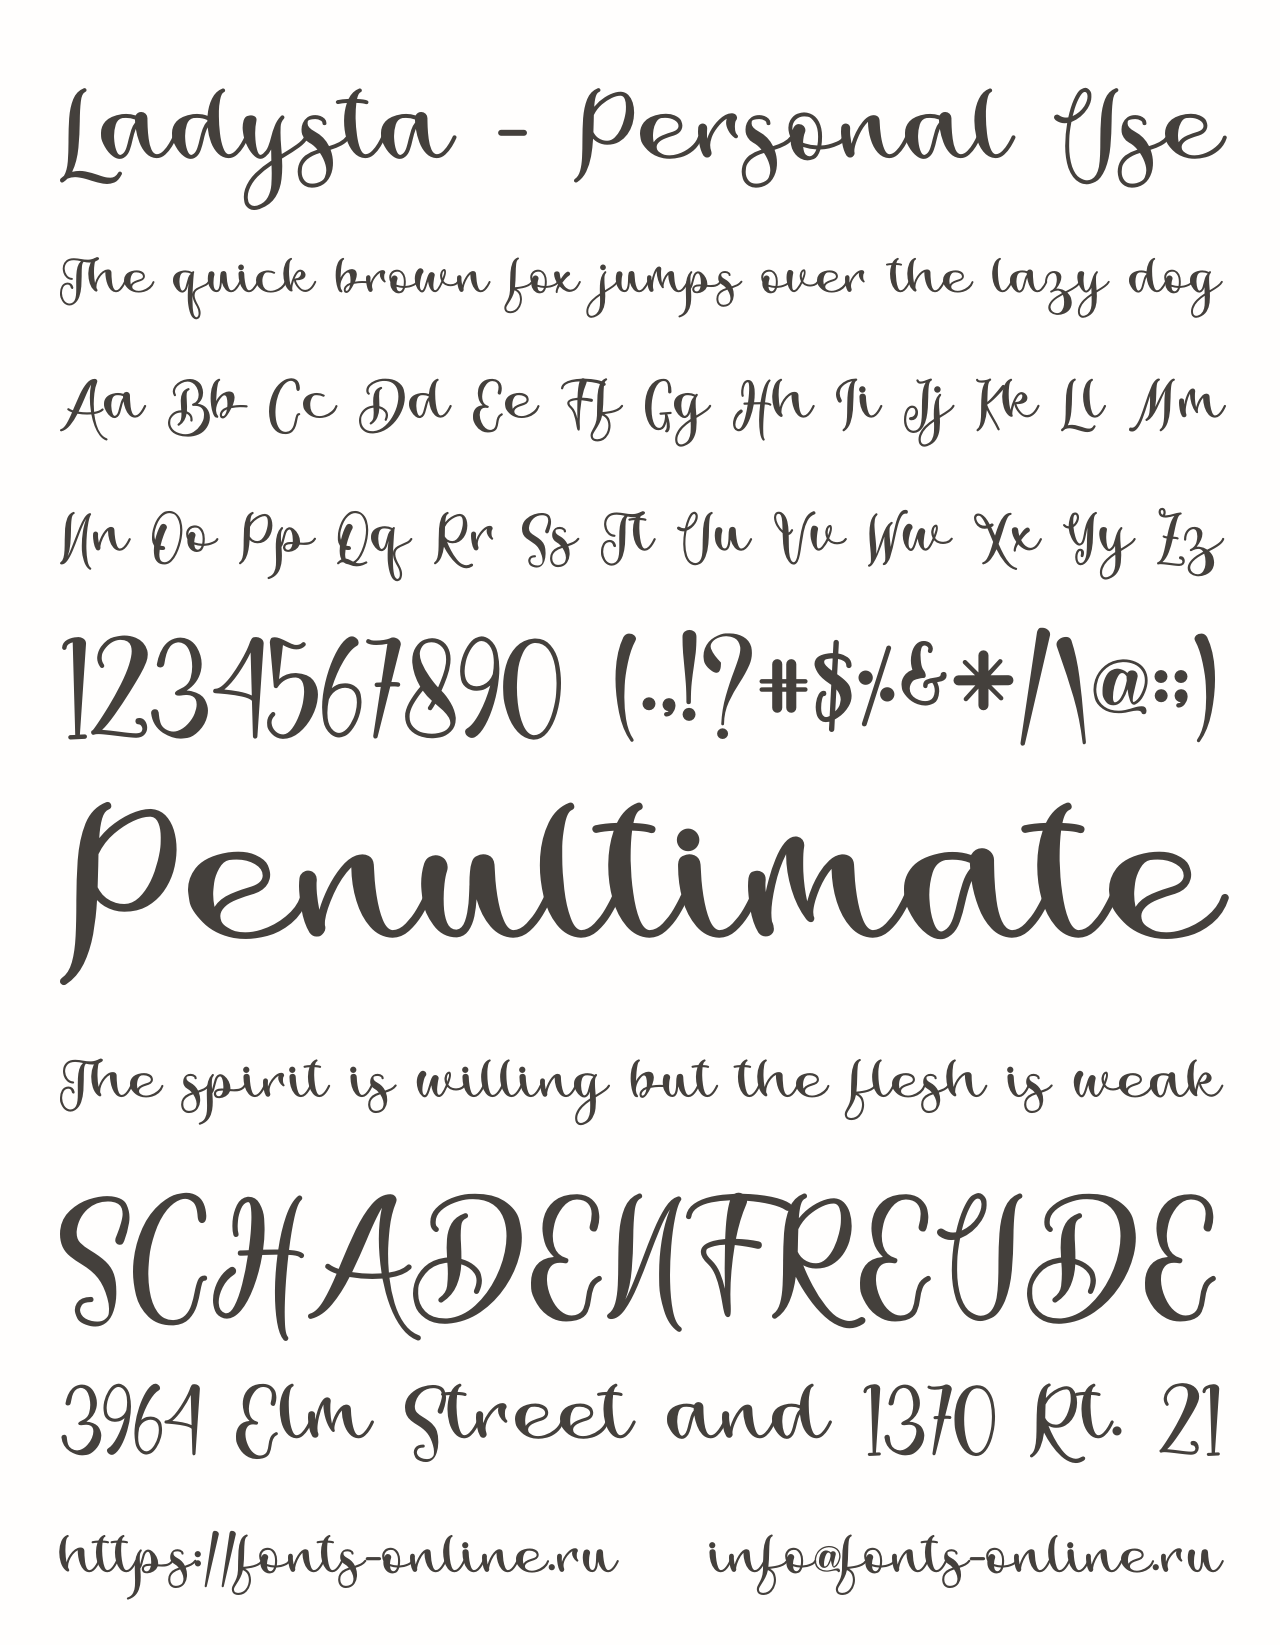 Ladysta - Personal Use
The quick brown fox jumps over the lazy dog
Aa Bb Cc Dd Ee Ff Gg Hh Ii Jj Kk Ll Mm
Nn Oo Pp Qq Rr Ss Tt Uu Vv Ww Xx Yy Zz
1234567890 (.,!?#$%&*/\@:;)
Penultimate
The spirit is willing but the flesh is weak
SCHADENFREUDE
3964 Elm Street and 1370 Rt. 21
https://fonts-online.ru info@fonts-online.ru